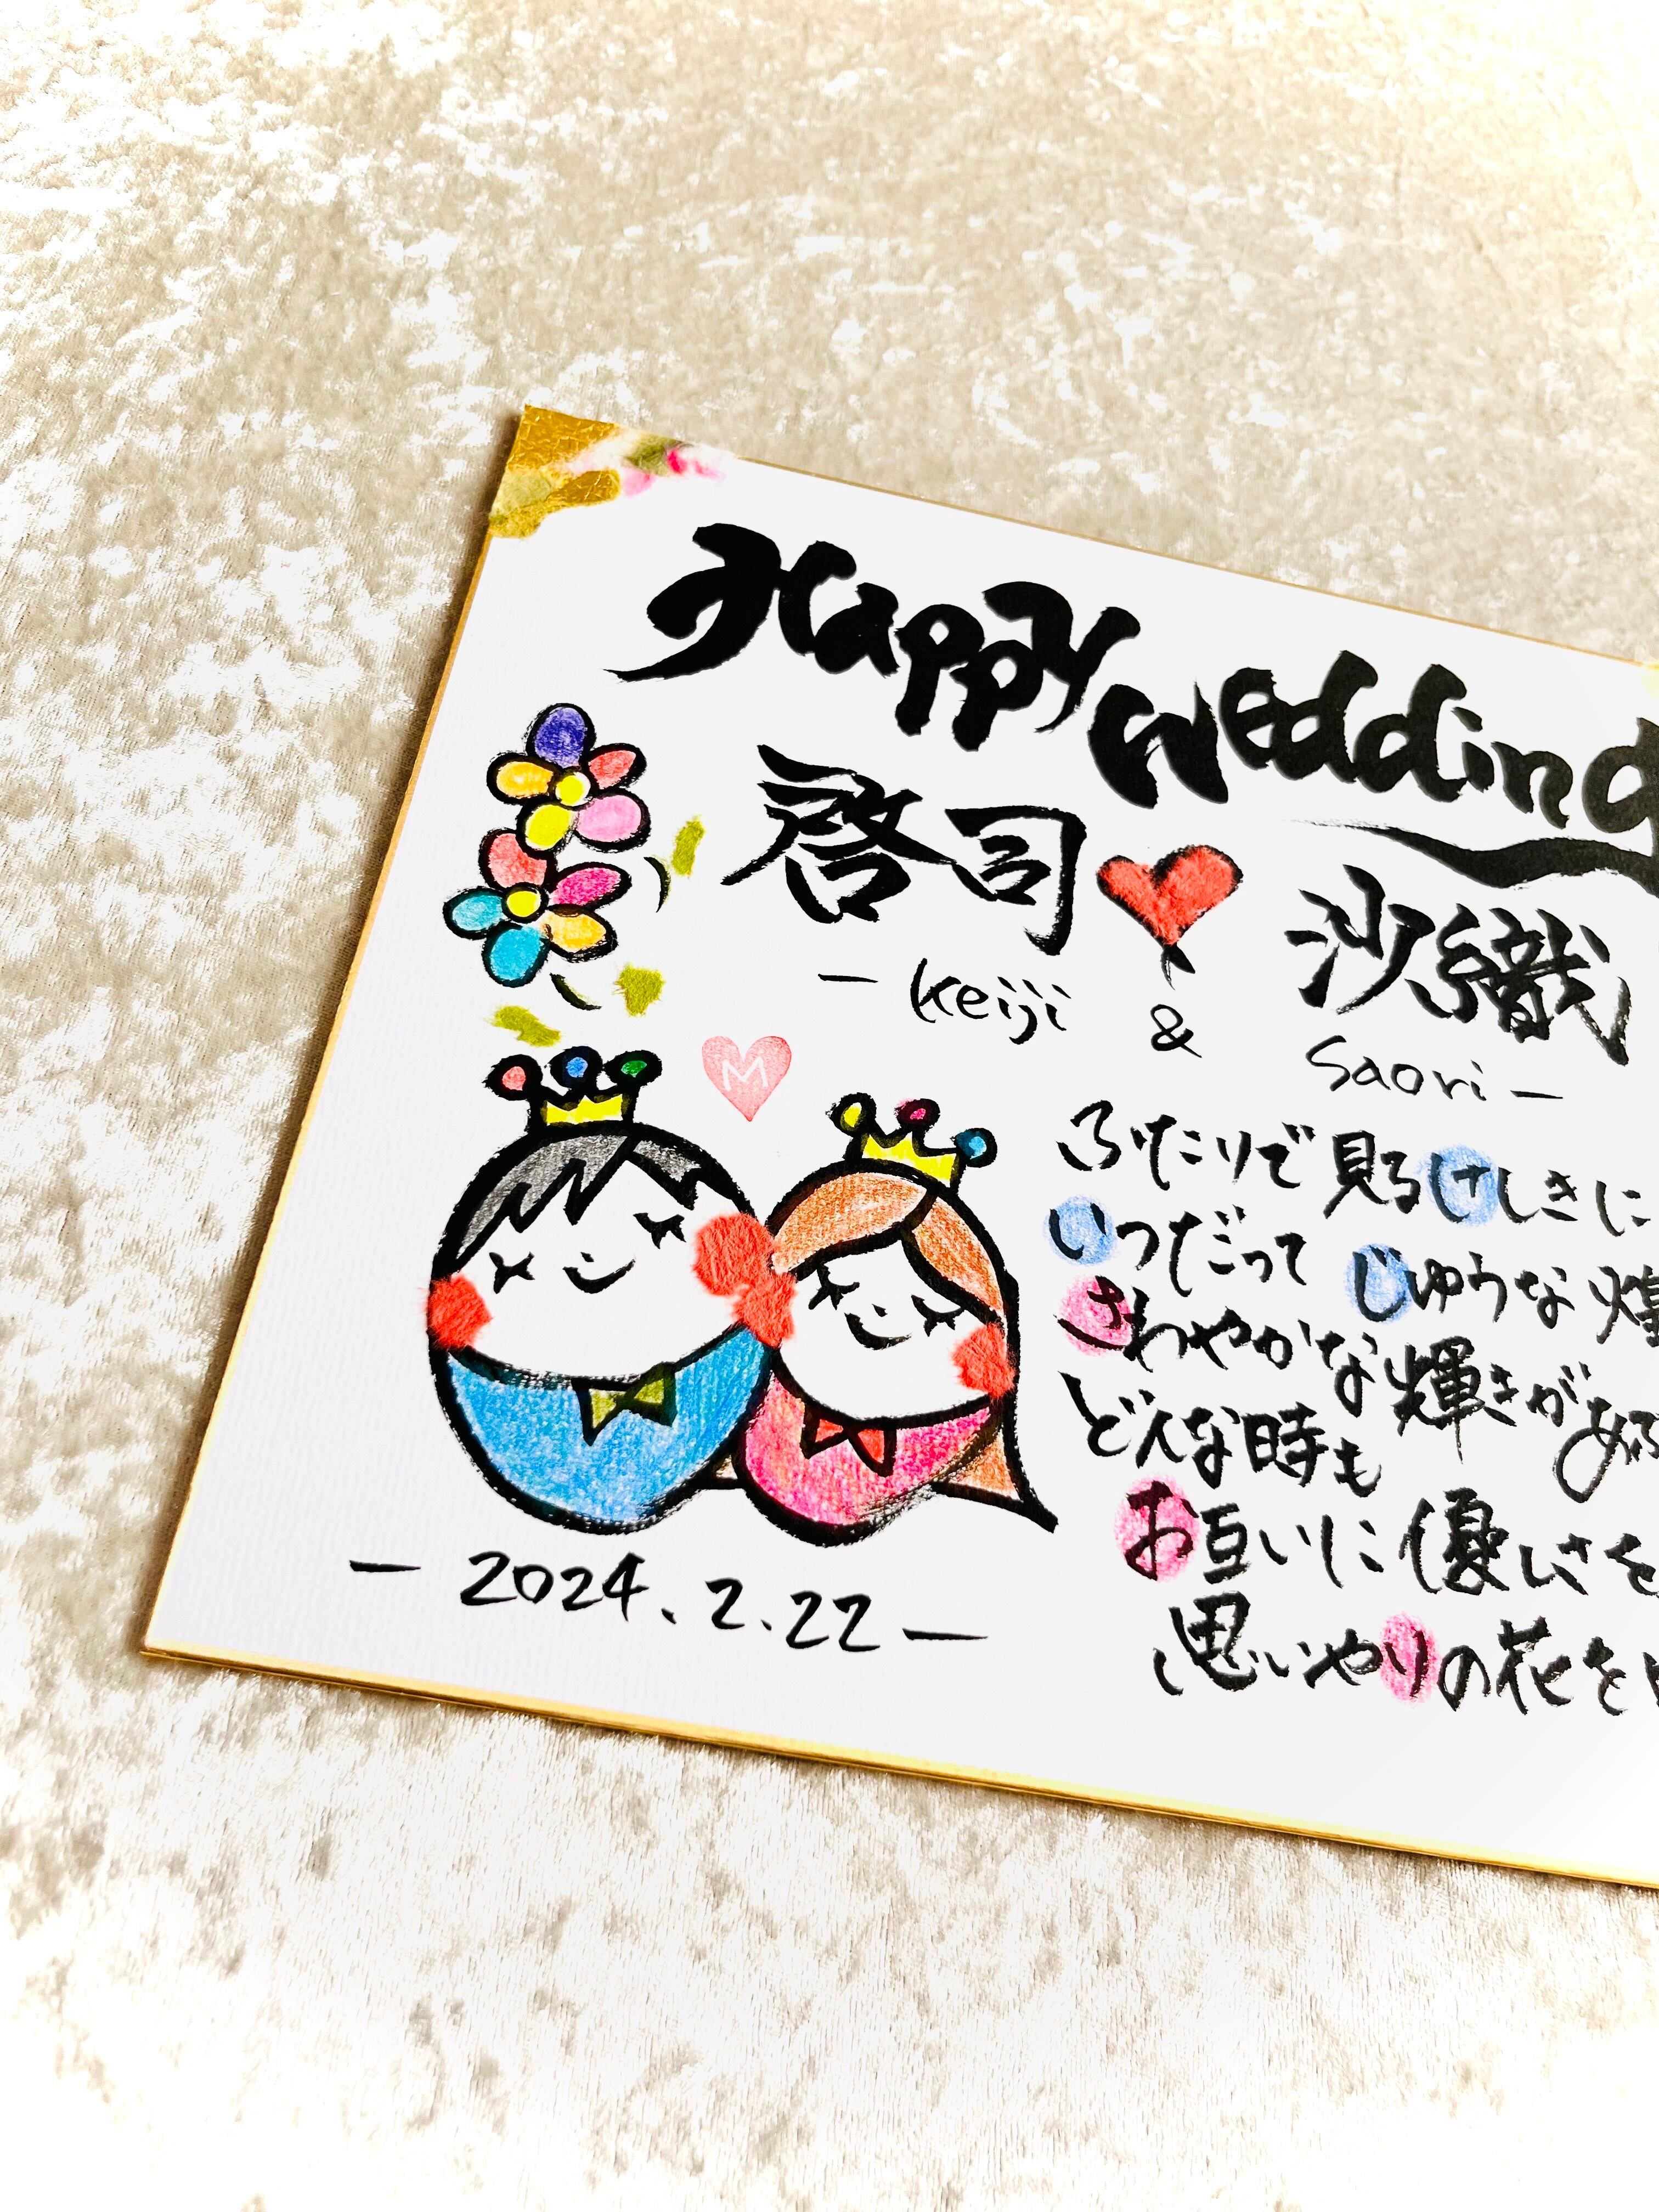 Happy Wedding
啓司 沙織
- Keiji & Saori -
M
ふたりで見るけしきに
いつだって じゆうな煌
さわやかな輝きがある
どんな時も
お互いに優しさを
思いやりの花を
- 2024.2.22 -